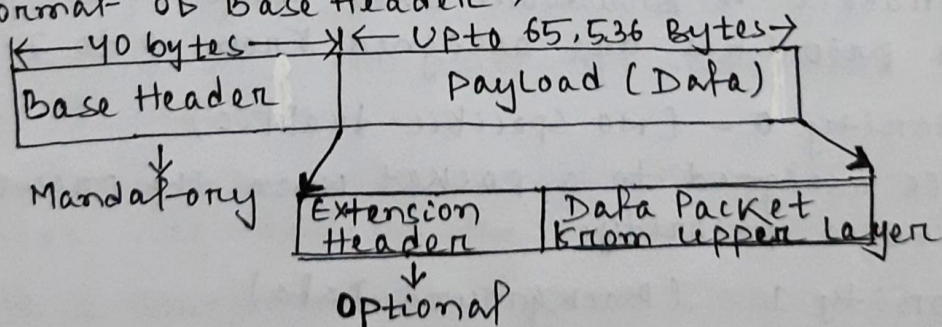 Format of Base Header
40 bytes Upto 65,536 Bytes
Base Header Payload (Data)
Mandatory
Extension Header Data Packet From upper Layer
Optional